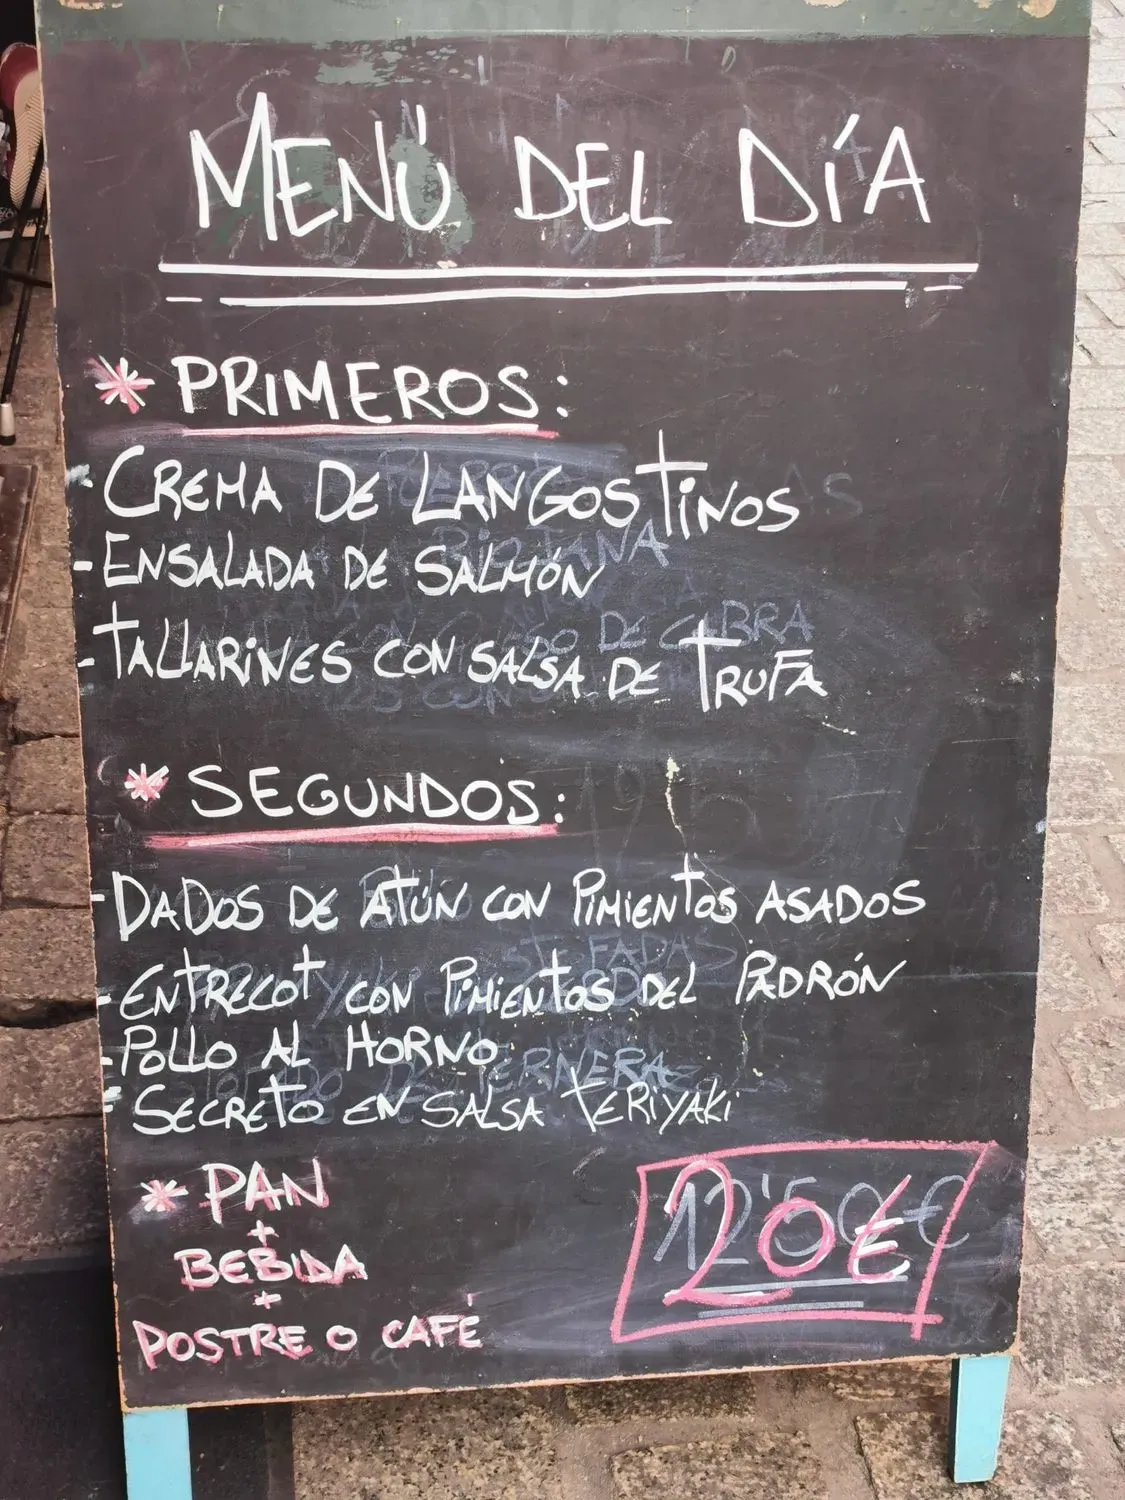 MENÚ DEL DÍA
* PRIMEROS:
- CREMA DE LANGOSTINOS
- ENSALADA DE SALMÓN
- TALLARINES CON SALSA DE TRUFA
* SEGUNDOS:
- DADOS DE ATÚN CON PIMIENTOS ASADOS
- ENTRECOT CON PIMIENTOS DEL PADRÓN
- POLLO AL HORNO
- SECRETO EN SALSA TERIYAKI
* PAN
+
BEBIDA
+
POSTRE O CAFÉ
20€